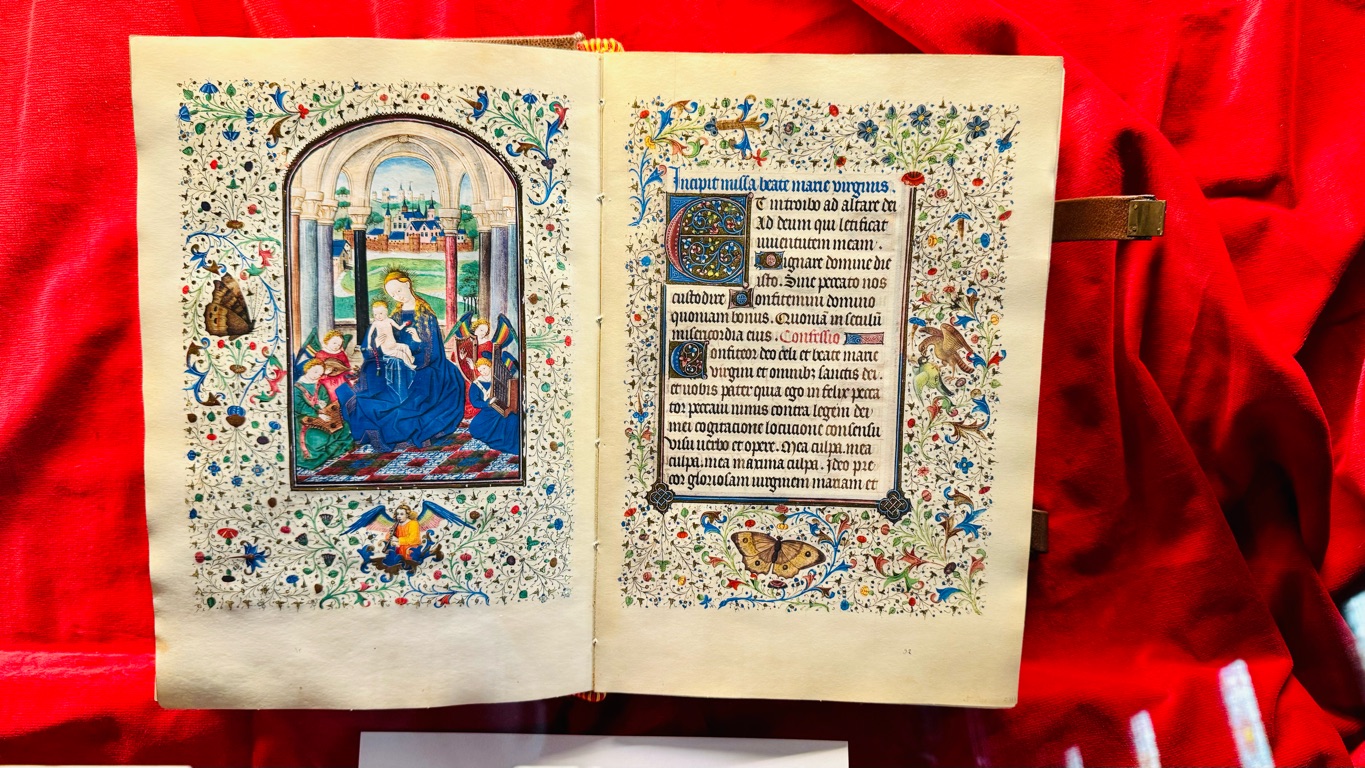 Incipit missa beate marie virginis.
Et introibo ad altare dei
Ad deum qui letificat
iuventutem meam.
Dignare domine die
isto. Sine peccato nos
custodire Confitemini domino
quoniam bonus. Quoniā in seculū
misericordia eius. Confessio
Confiteor deo celi et beate marie
virgini et omnibȝ sanctis dei.
et vobis pater quia ego infelix pecca
tor peccavi nimis contra legem dei
mei cogitacione locucione consensu
visu verbo et opere. Mea culpa. mea
culpa. mea maxima culpa. Ideo pre
cor gloriosam virginem mariam et